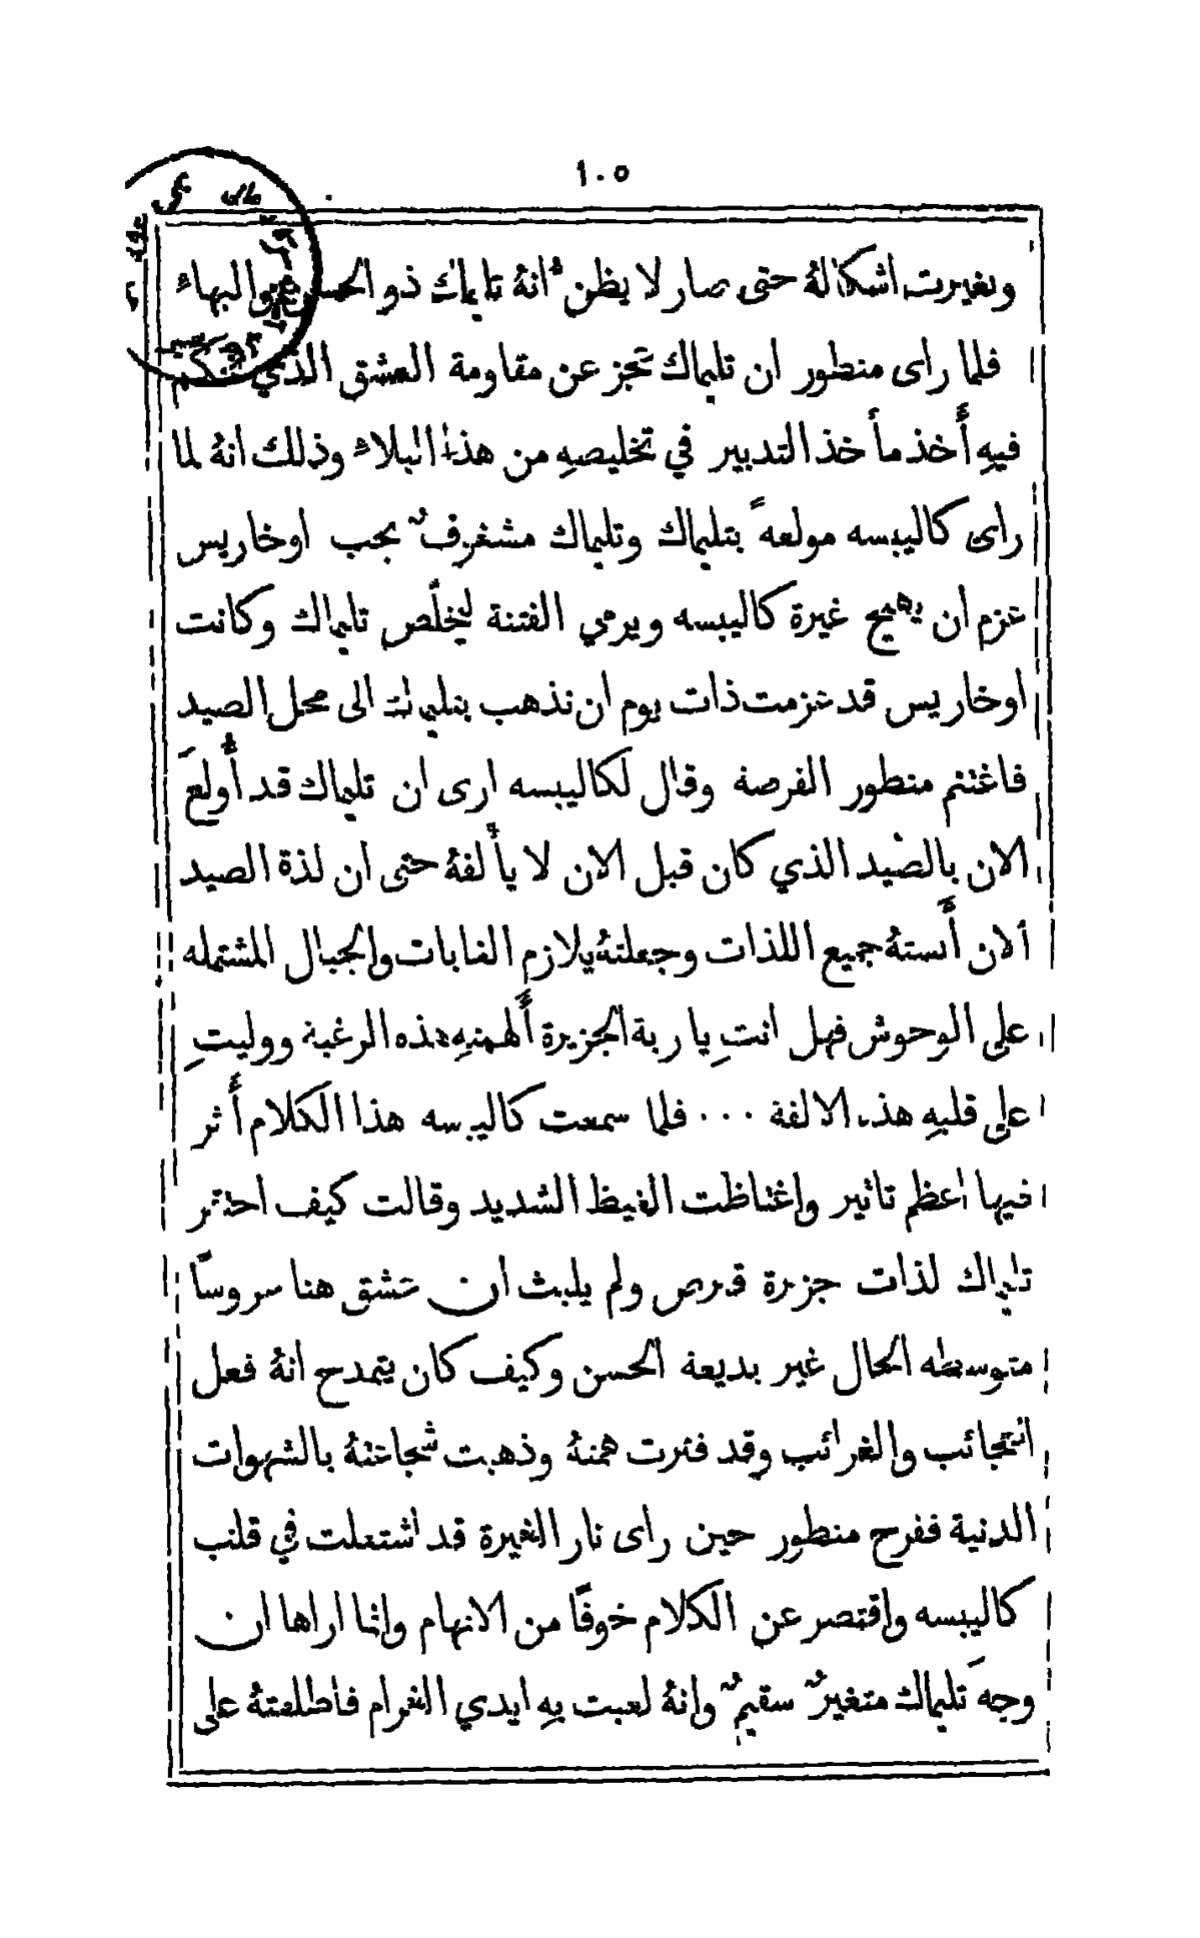 ١٠٥
وتغيرت اشكالهُ حتى صار لا يظن انهُ تليماك ذو الحسن والبهاء
فلما راى منطور ان تليماك عجز عن مقاومة العشق الذي تمكن
فيهِ أَخذ مأخذ التدبير في تخليصهِ من هذا البلاء وذلك انهُ لما
راى كاليبسه مولعهً بتليماك وتليماك مشغوفٌ بحب اوخاريس
عزم ان يهيج غيرة كاليبسه ويرمي الفتنة ليخلّص تليماك وكانت
اوخاريس قد عزمت ذات يوم ان تذهب بتليماك الى محل الصيد
فاغتنم منطور الفرصة وقال لكاليبسه ارى ان تليماك قد أُولعَ
الان بالصيد الذي كان قبل الان لا يأَلفهُ حتى ان لذة الصيد
الان أَنستهُ جميع اللذات وجعلتهُ يلازم الغابات والجبال المشتمله
على الوحوش فهل انتِ يا ربة الجزيرة أَلهمتهِ هذه الرغبة ووليتِ
على قلبهِ هذه الالفة ٠٠٠ فلما سمعت كاليبسه هذا الكلام أَثر
فيها اعظم تاثير واغتاظت الغيظ الشديد وقالت كيف احتقر
تليماك لذات جزيرة قبرص ولم يلبث ان عشق هنا عروسًا
متوسطه الحال غير بديعة الحسن وكيف كان يتمدح انهُ فعل
العجائب والغرائب وقد فترت همتهُ وذهبت شجاعتهُ بالشهوات
الدنية ففرح منطور حين راى نار الغيرة قد اشتعلت في قلب
كاليبسه واقتصر عن الكلام خوفًا من الاتهام وانما اراها ان
وجهَ تليماك متغيرٌ سقيمٌ وانهُ لعبت بهِ ايدي الغرام فاطلعتهُ على